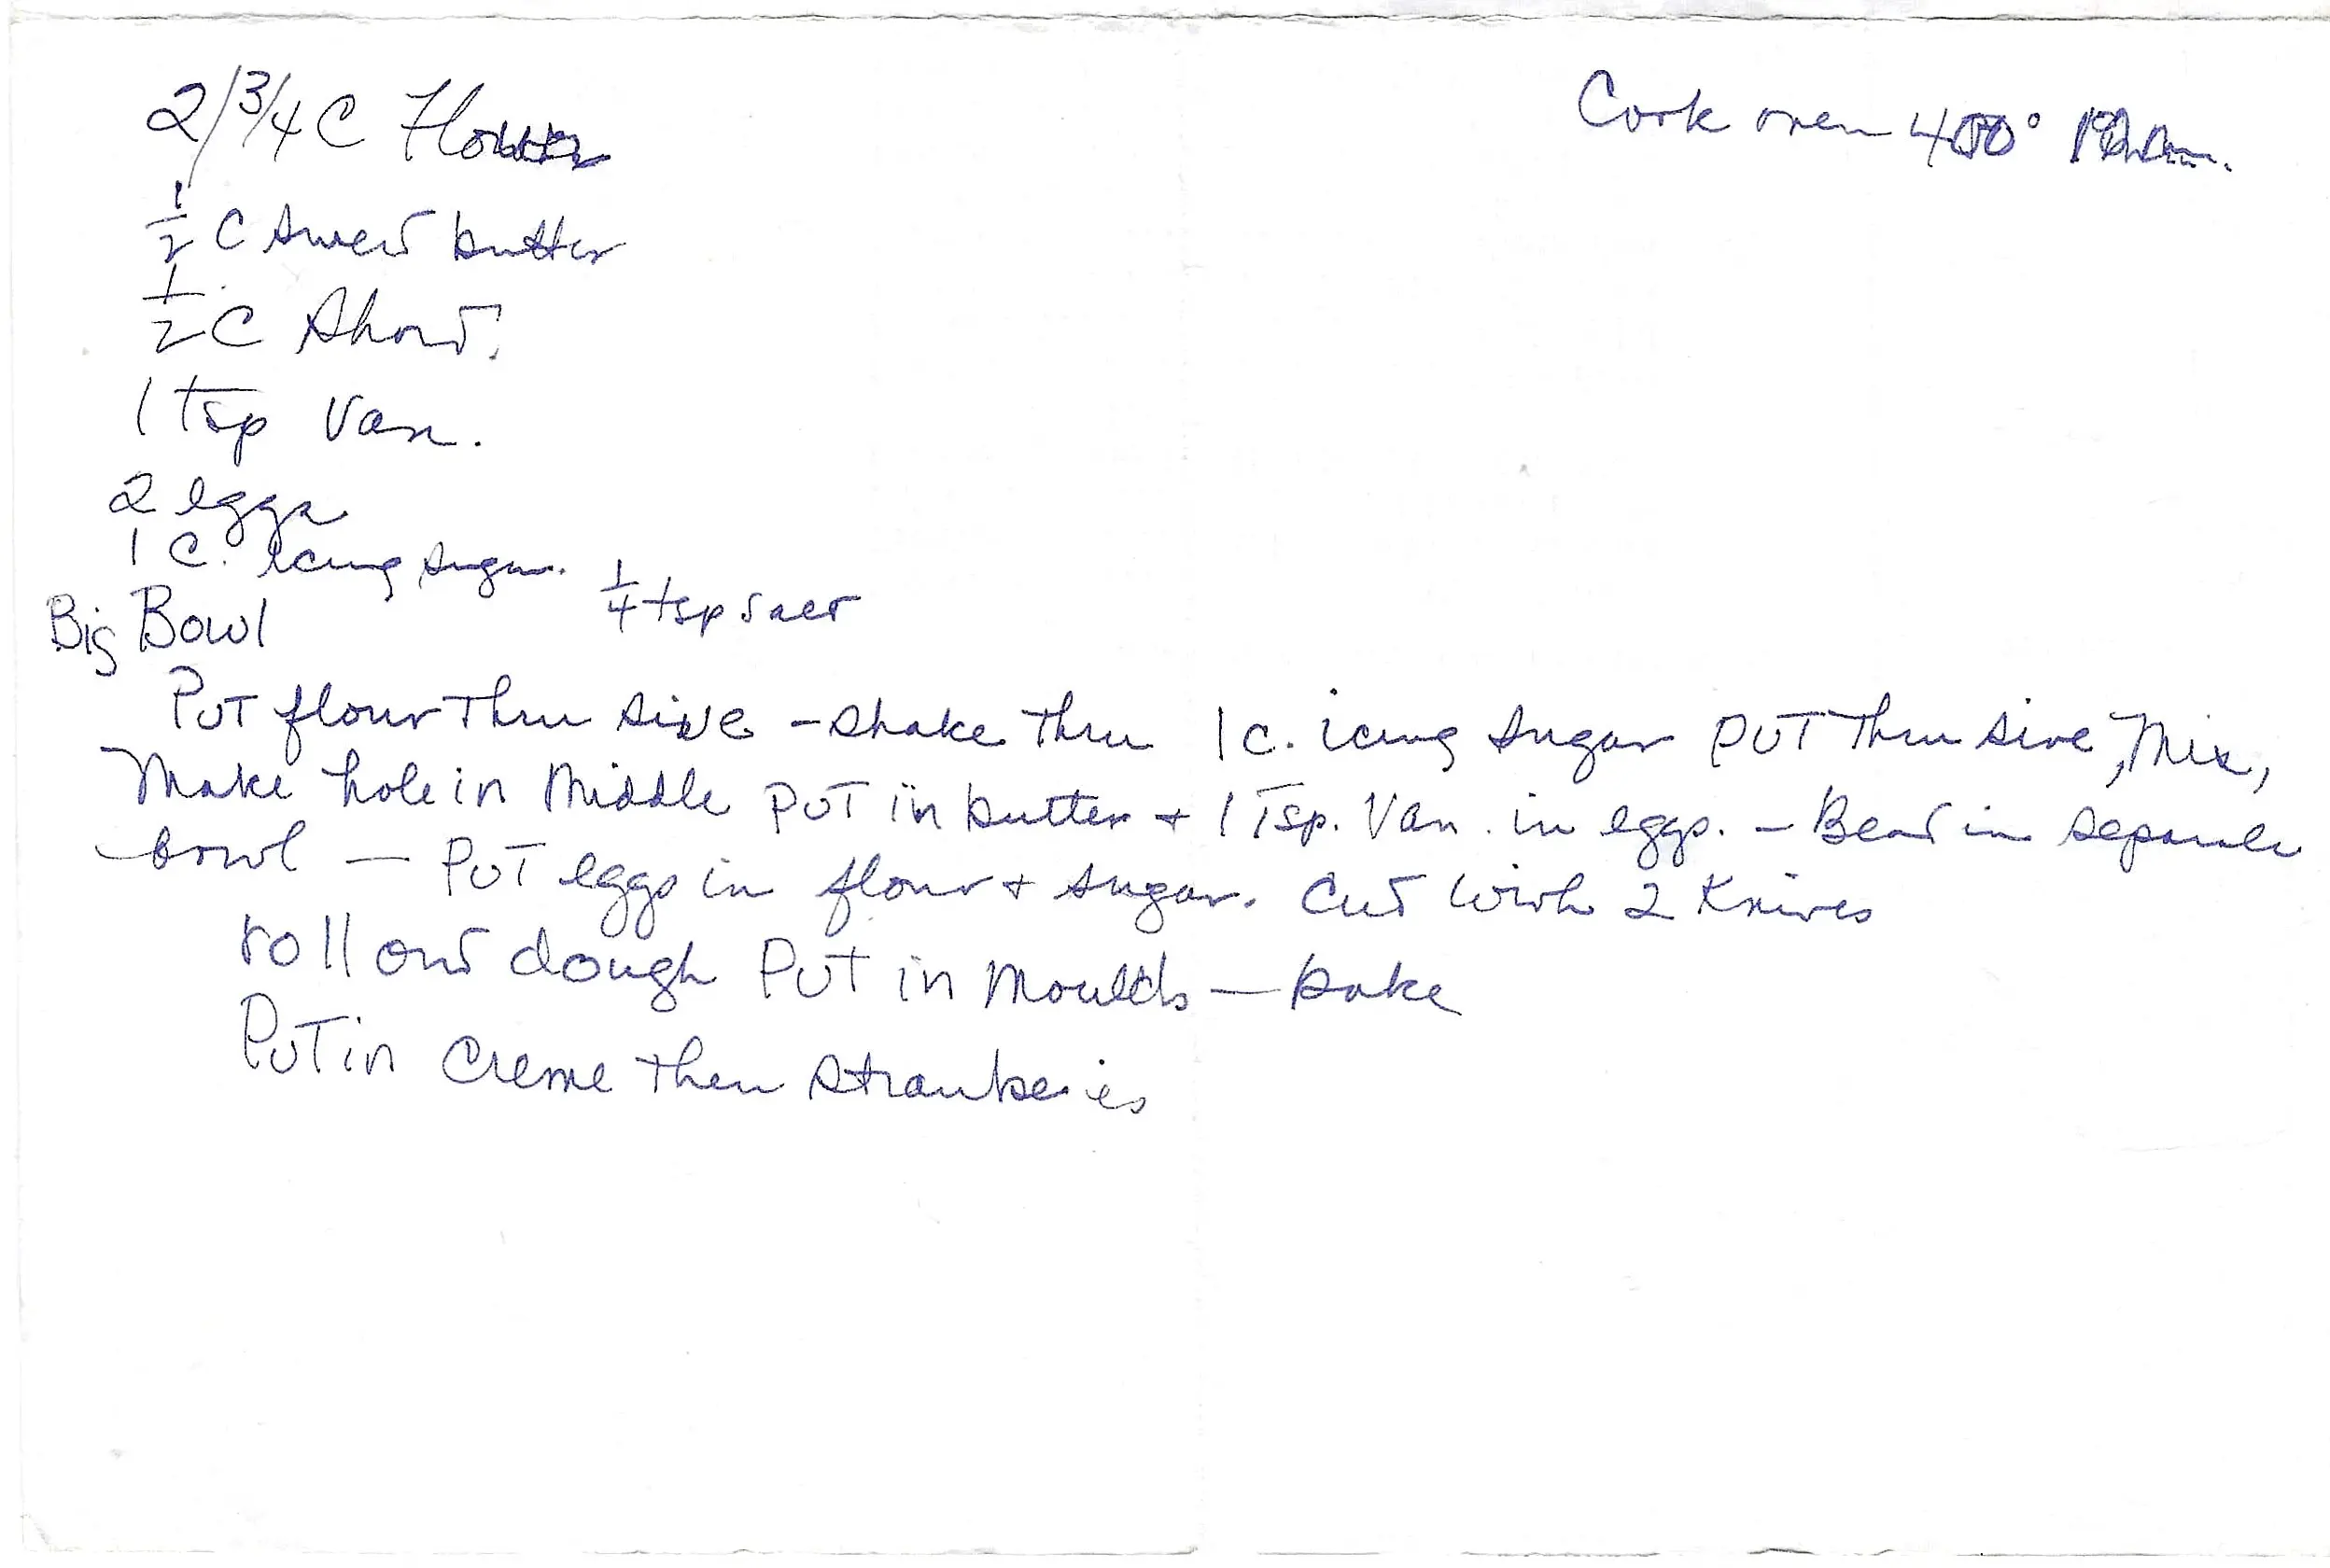 2/3/4 C Flour
Cook oven 400°
1/2 C sweet butter
1/2 C Short.
1 tsp Van.
2 eggs
1 C. icing sugar.
1/4 tsp salt
Big Bowl
Put flour thru sive - shake thru 1 c. icing sugar put thru sive, Mix,
Make hole in middle put in butter + 1 Tsp. Van. in eggs. - Beat in separate
bowl - Put eggs in flour + sugar. Cut with 2 Knives
roll out dough Put in Moulds - bake
Put in Creme then strawberies